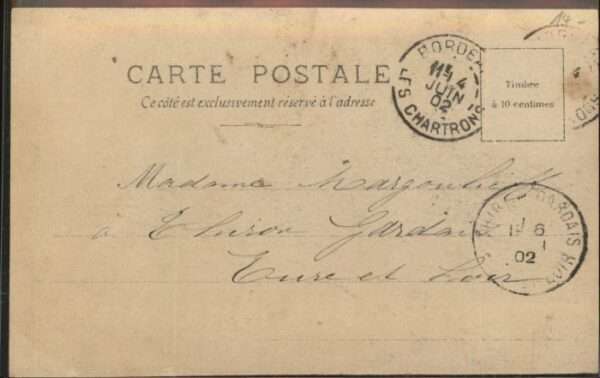 14-
CARTE POSTALE
Ce côté est exclusivement réservé à l'adresse
BORDEA
11 4
JUIN
02
LES CHARTRONS
Timbre
à 10 centimes
Madame
à Thiron Gardais
Eure et Loir
GARDAIS
6
02